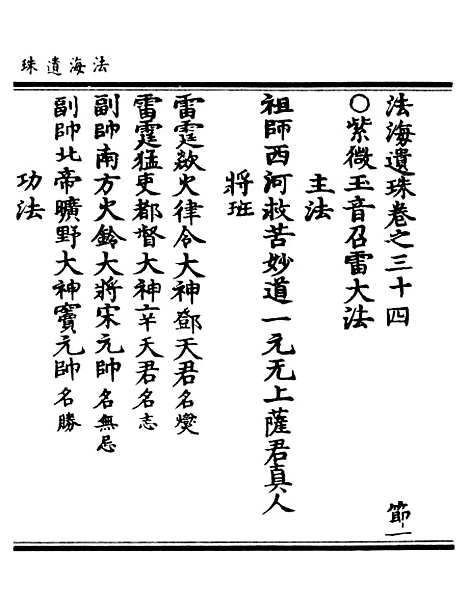 法海遺珠
法海遺珠卷之三十四 節一
○紫微玉音召雷大法
主法
祖師西河救苦妙道一元无上薩君真人
將班
雷霆欻火律令大神鄧天君名燮
雷霆猛吏都督大神辛天君名志
副帥南方火鈴大將宋元帥名無忌
副帥北帝曠野大神竇元帥名勝
功法